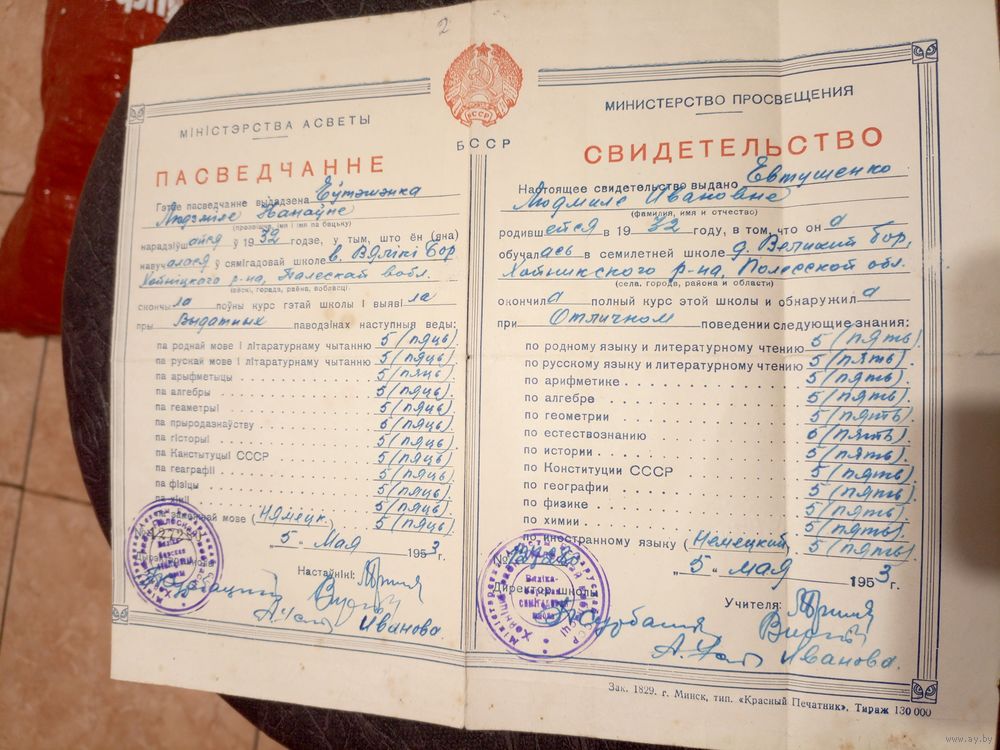 2
БССР
МІНІСТЭРСТВА АСВЕТЫ
ПАСВЕДЧАННЕ
Гэта пасведчанне выдадзена Еўтэшэнка
Людміле Іванаўне
(прозвішча, імя і імя па бацьку)
нарадзіўшайся ў 1932 годзе, у тым, што ён (яна)
навучалася ў сямігадовай школе в. Вялікі Бор
Хойніцкого р-на, Палескай вобл.
(вёскі, горада, раёна, вобласці)
скончыла поўны курс гэтай школы і выявіла
пры Выдатных паводзінах наступныя веды:
па роднай мове і літаратурнаму чытанню 5 (пяць)
па рускай мове і літаратурнаму чытанню 5 (пяць)
па арыфметыцы 5 (пяць)
па алгебры 5 (пяць)
па геаметрыі 5 (пяць)
па прыродазнаўству 5 (пяць)
па гісторыі 5 (пяць)
па Канстытуцыі СССР 5 (пяць)
па геаграфіі 5 (пяць)
па фізіцы 5 (пяць)
па хіміі 5 (пяць)
па замежнай мове (Нямецк.) 5 (пяць)
„5“ Мая 1953 г.
Настаўнікі:
Иванова.
МИНИСТЕРСТВО ПРОСВЕЩЕНИЯ
СВИДЕТЕЛЬСТВО
Настоящее свидетельство выдано Евтушенко
Людмиле Ивановне
(фамилия, имя и отчество)
родившейся в 1932 году, в том, что она
обучалась в семилетней школе д. Великий бор,
Хойникского р-на, Полесской обл.
(села, города, района и области)
окончила полный курс этой школы и обнаружила
при Отличном поведении следующие знания:
по родному языку и литературному чтению 5 (пять)
по русскому языку и литературному чтению 5 (пять)
по арифметике 5 (пять)
по алгебре 5 (пять)
по геометрии 5 (пять)
по естествознанию 5 (пять)
по истории 5 (пять)
по Конституции СССР 5 (пять)
по географии 5 (пять)
по физике 5 (пять)
по химии 5 (пять)
по иностранному языку (Немецкий) 5 (пять)
„5“ мая 1953 г.
Директор школы
Учителя:
Иванова.
Зак. 1829. г. Минск, тип. «Красный Печатник». Тираж 130 000
www.ay.by